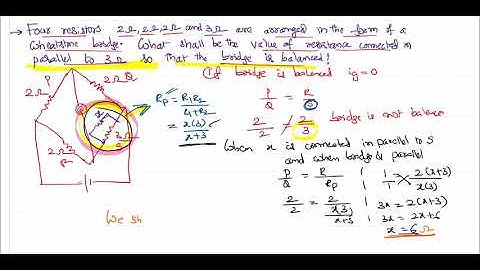 → Four resistors 2Ω, 2Ω, 2Ω and 3Ω are arranged in the form of a
Wheatstone bridge. What shall be the value of resistance connected in
parallel to 3Ω so that the bridge is balanced!
① If bridge is balanced ig=0
P 2Ω 2Ω Q
Rp = R1R2
R1+R2
= x(3)
x+3
P/Q = R/S
2/2 ≠ 2/3 bridge is not balance
When x is connected in parallel to S
and when bridge is parallel
P/Q = R/Rp
2/2 = 2
x3
x+3
1/1 = 2(x+3)
x(3)
3x = 2(x+3)
3x = 2x+6
x = 6Ω
2Ω R
x
3Ω
We sh